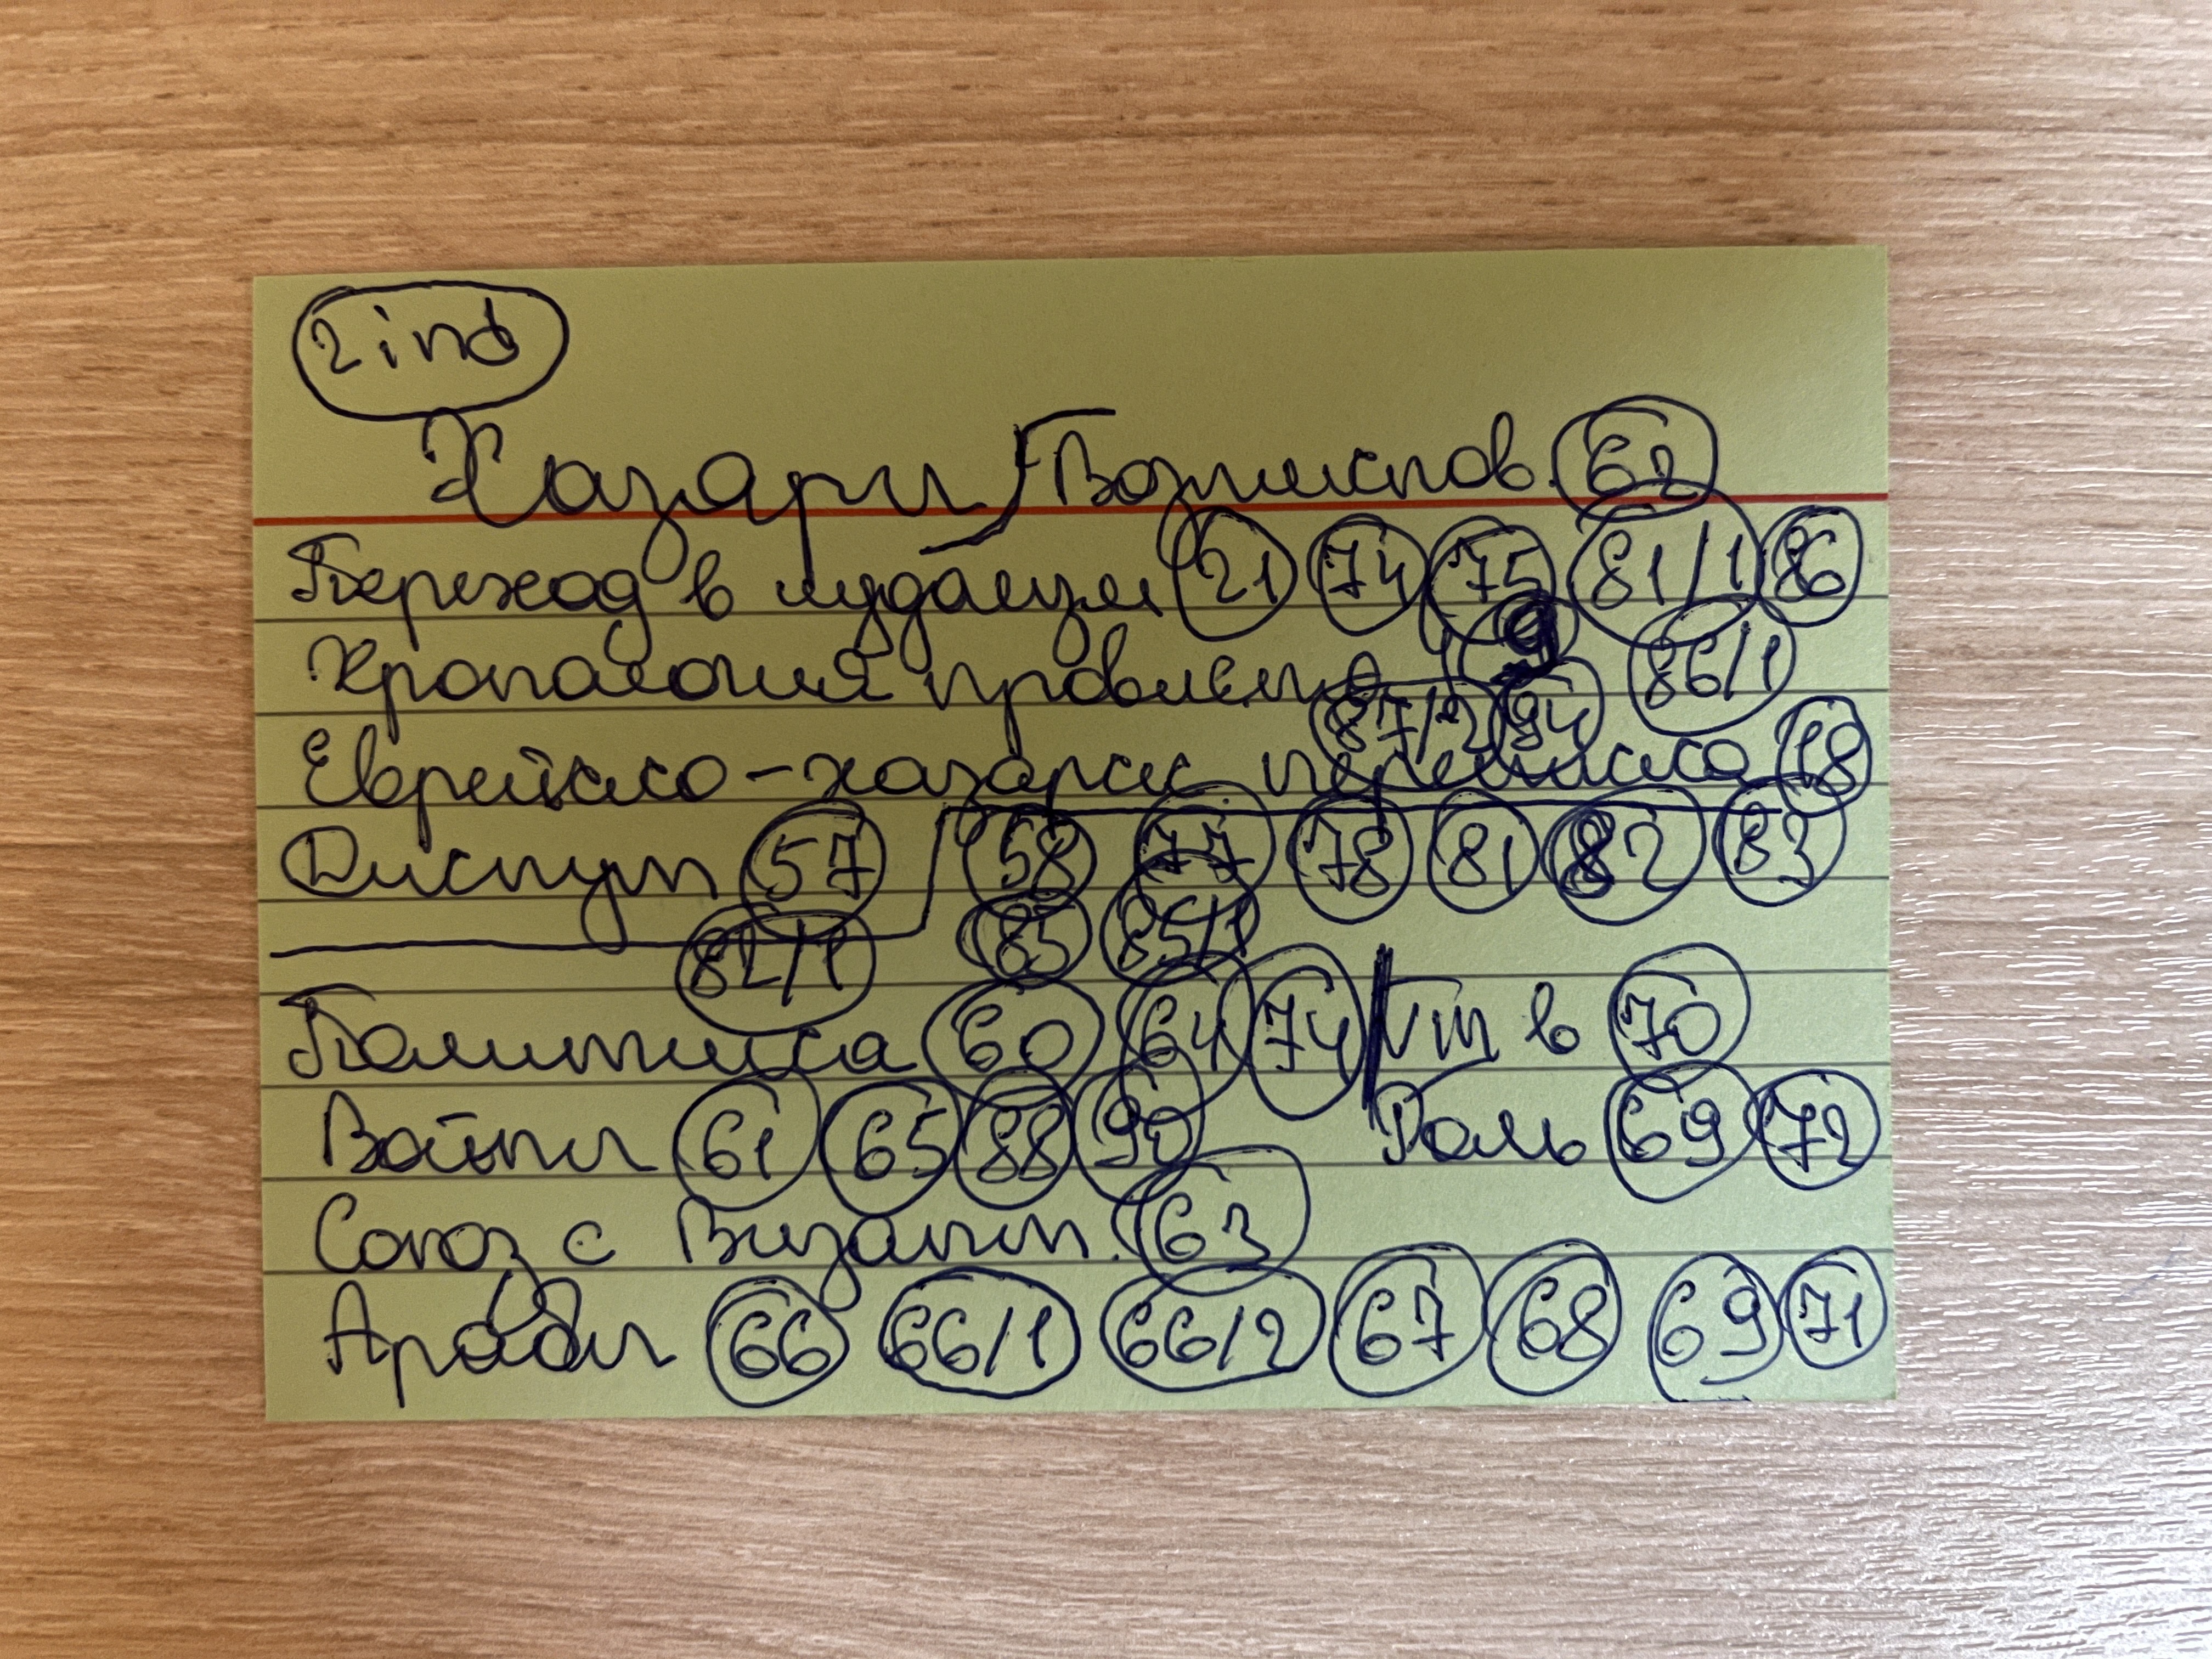 2ind
Хазары Возникнов. 62
Переход в иудаизм 21 74 75 81/1 86
Хронология проблема 9 86/1
87/2 94
Еврейско-хазарск. переписка 18
Диспут 57 58 77 78 81 82 83
82/1 85 85/1
Политика 60 64 74 VIII в 70
Войны 61 65 88 90 Роль 69 72
Союз с Визант. 63
Арабы 66 66/1 66/2 67 68 69 71